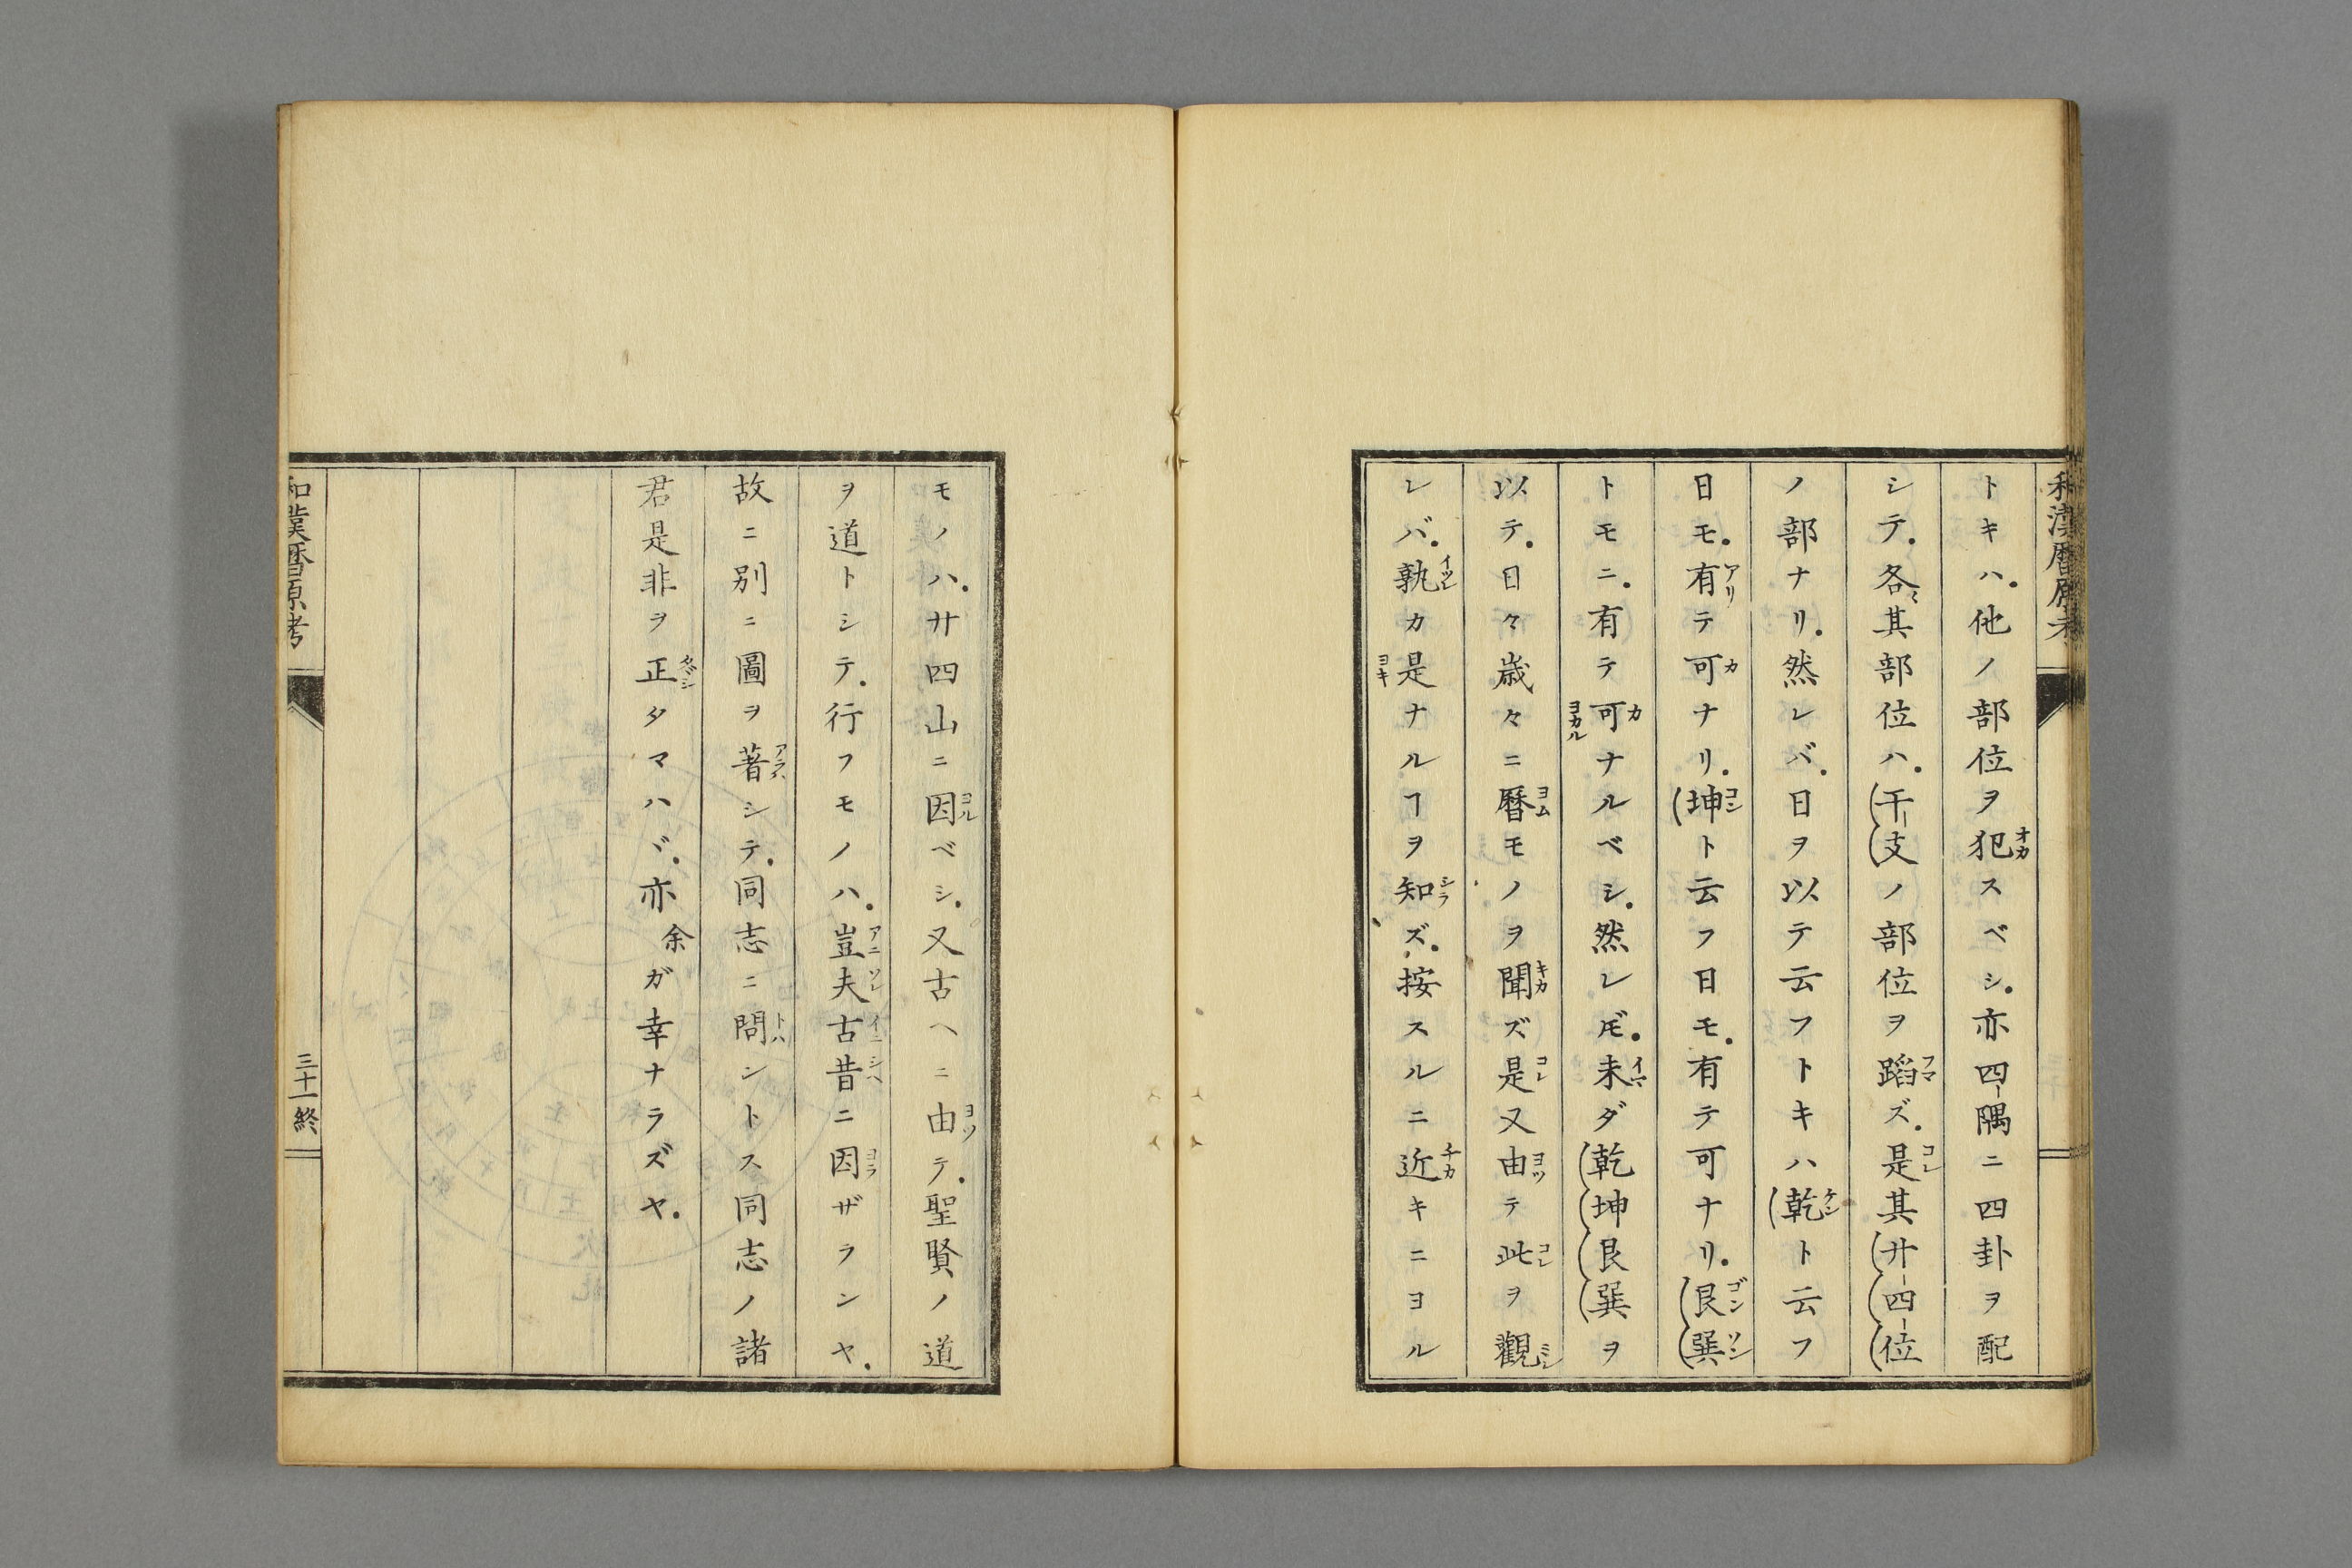 和漢暦原考
トキハ。他ノ部位ヲ犯スベシ。亦四隅ニ四卦ヲ配
シテ。各々其部位ハ。干支ノ部位ヲ蹈ズ。是其廿四位
ノ部ナリ。然レバ。日ヲ以テ云フトキハ乾ト云フ
日モ。有テ可ナリ。坤ト云フ日モ。有テ可ナリ。艮巽
トモニ。有テ可ナルベシ。然レ𪜈。未ダ乾坤艮巽ヲ
以テ。日々歳々ニ暦モノヲ聞ズ是又由テ此ヲ觀
レバ。孰カ是ナルヿヲ知ズ。按スルニ近キニヨル
モノハ。廿四山ニ因ベシ。又古ヘニ由テ。聖賢ノ道
ヲ道トシテ。行フモノハ。豈夫古昔ニ因ザランヤ。
故ニ別ニ圖ヲ著シテ。同志ニ問ントス同志ノ諸
君是非ヲ正タマハヾ。亦余ガ幸ナラズヤ。
和漢暦原考
三十一終